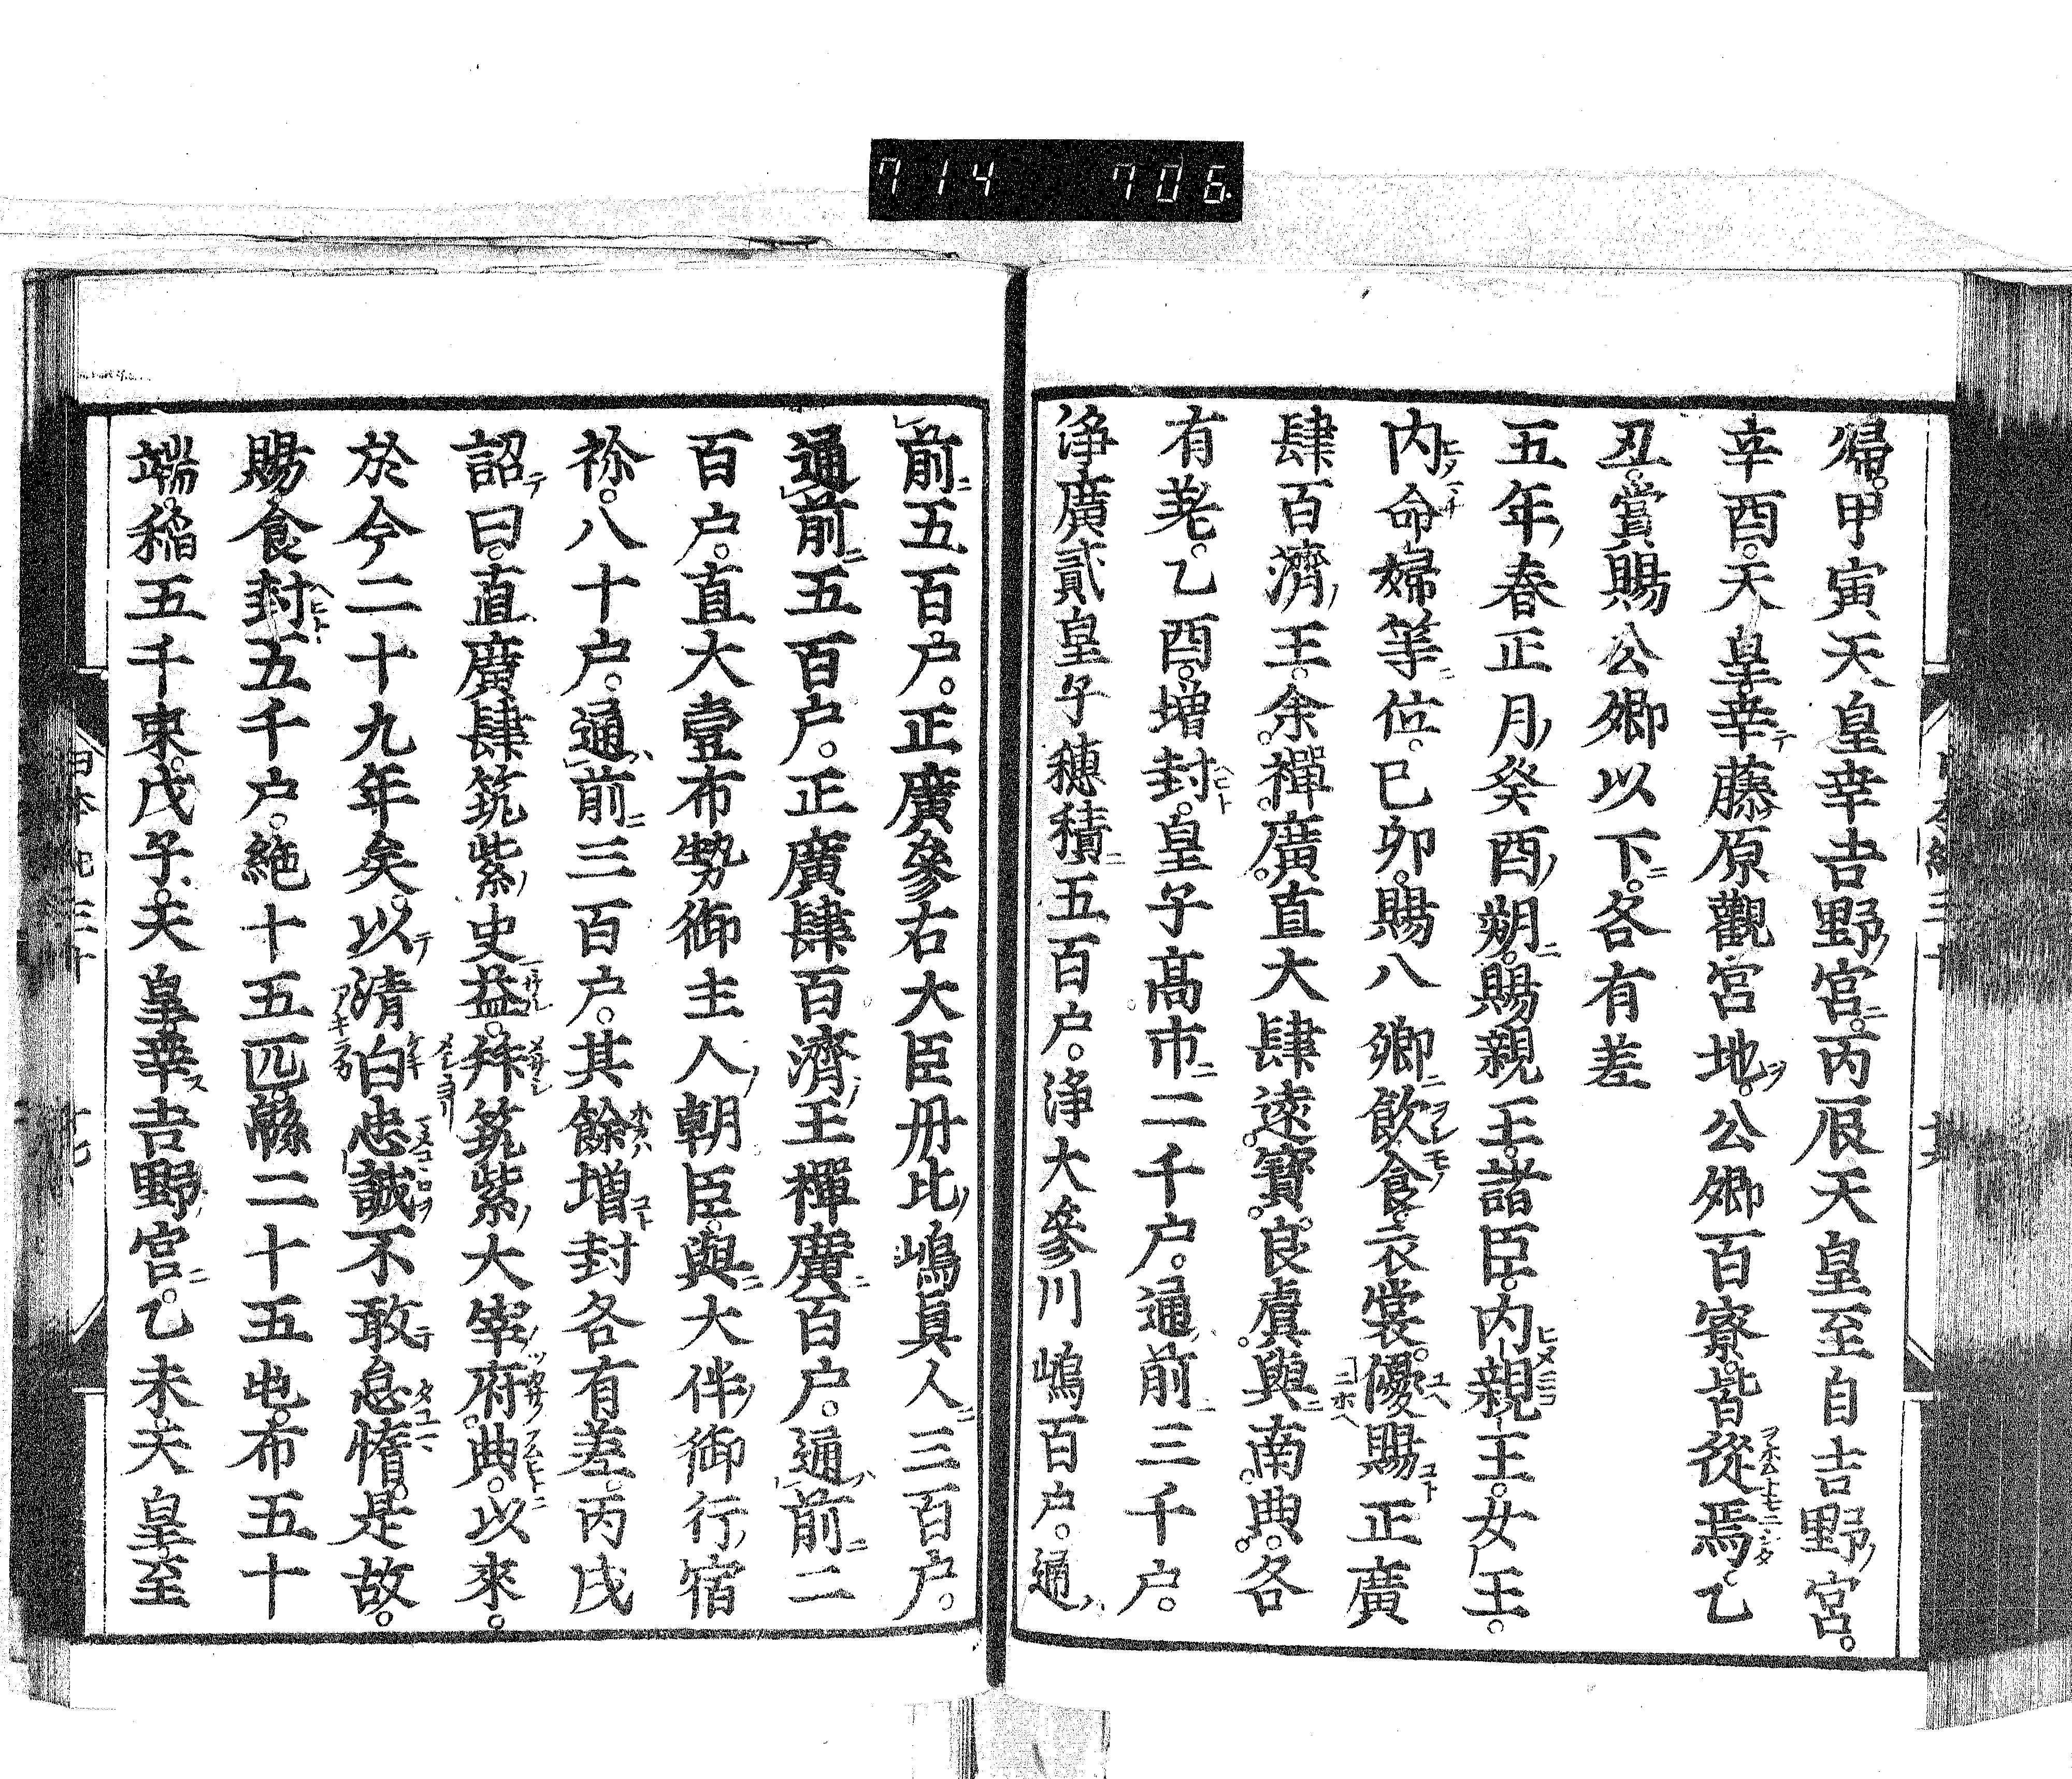 714 706.
歸。甲寅天皇幸吉野宮。丙辰天皇至自吉野宮。
幸酉。天皇幸藤原觀宮地。公卿百寮皆從焉。乙
丑。賞賜公卿以下。各有差
五年春正月癸酉朔。賜親王。諸臣。内親王。女王。
内命婦等位。已卯。賜八卿飲食。衣裳。優賜正廣
肆百濟王。余。禪。廣。直大肆遠。寶。良。虞。與南。典。各
有差。乙酉。増封。皇子髙市二千户。通前三千户。
浄廣貳皇子穗積五百户。浄大參川嶋百户。通
前五百户。正廣參右大臣丹比嶋真人三百户。
通前五百户。正廣肆百濟王禪廣百户。通前二
百户。直大壹布勢御主人朝臣。與大伴御行宿
祢。八十户。通前三百户。其餘増封各有差。丙戌
詔曰。直廣肆筑紫史益。拜筑紫大宰府。典。以來。
於今二十九年矣。以清白忠誠不敢怠惰。是故。
賜食封五千户。絁十五匹。緜二十五屯。布五十
端。稲五千束。戊子。天皇幸吉野宮。乙未。天皇至